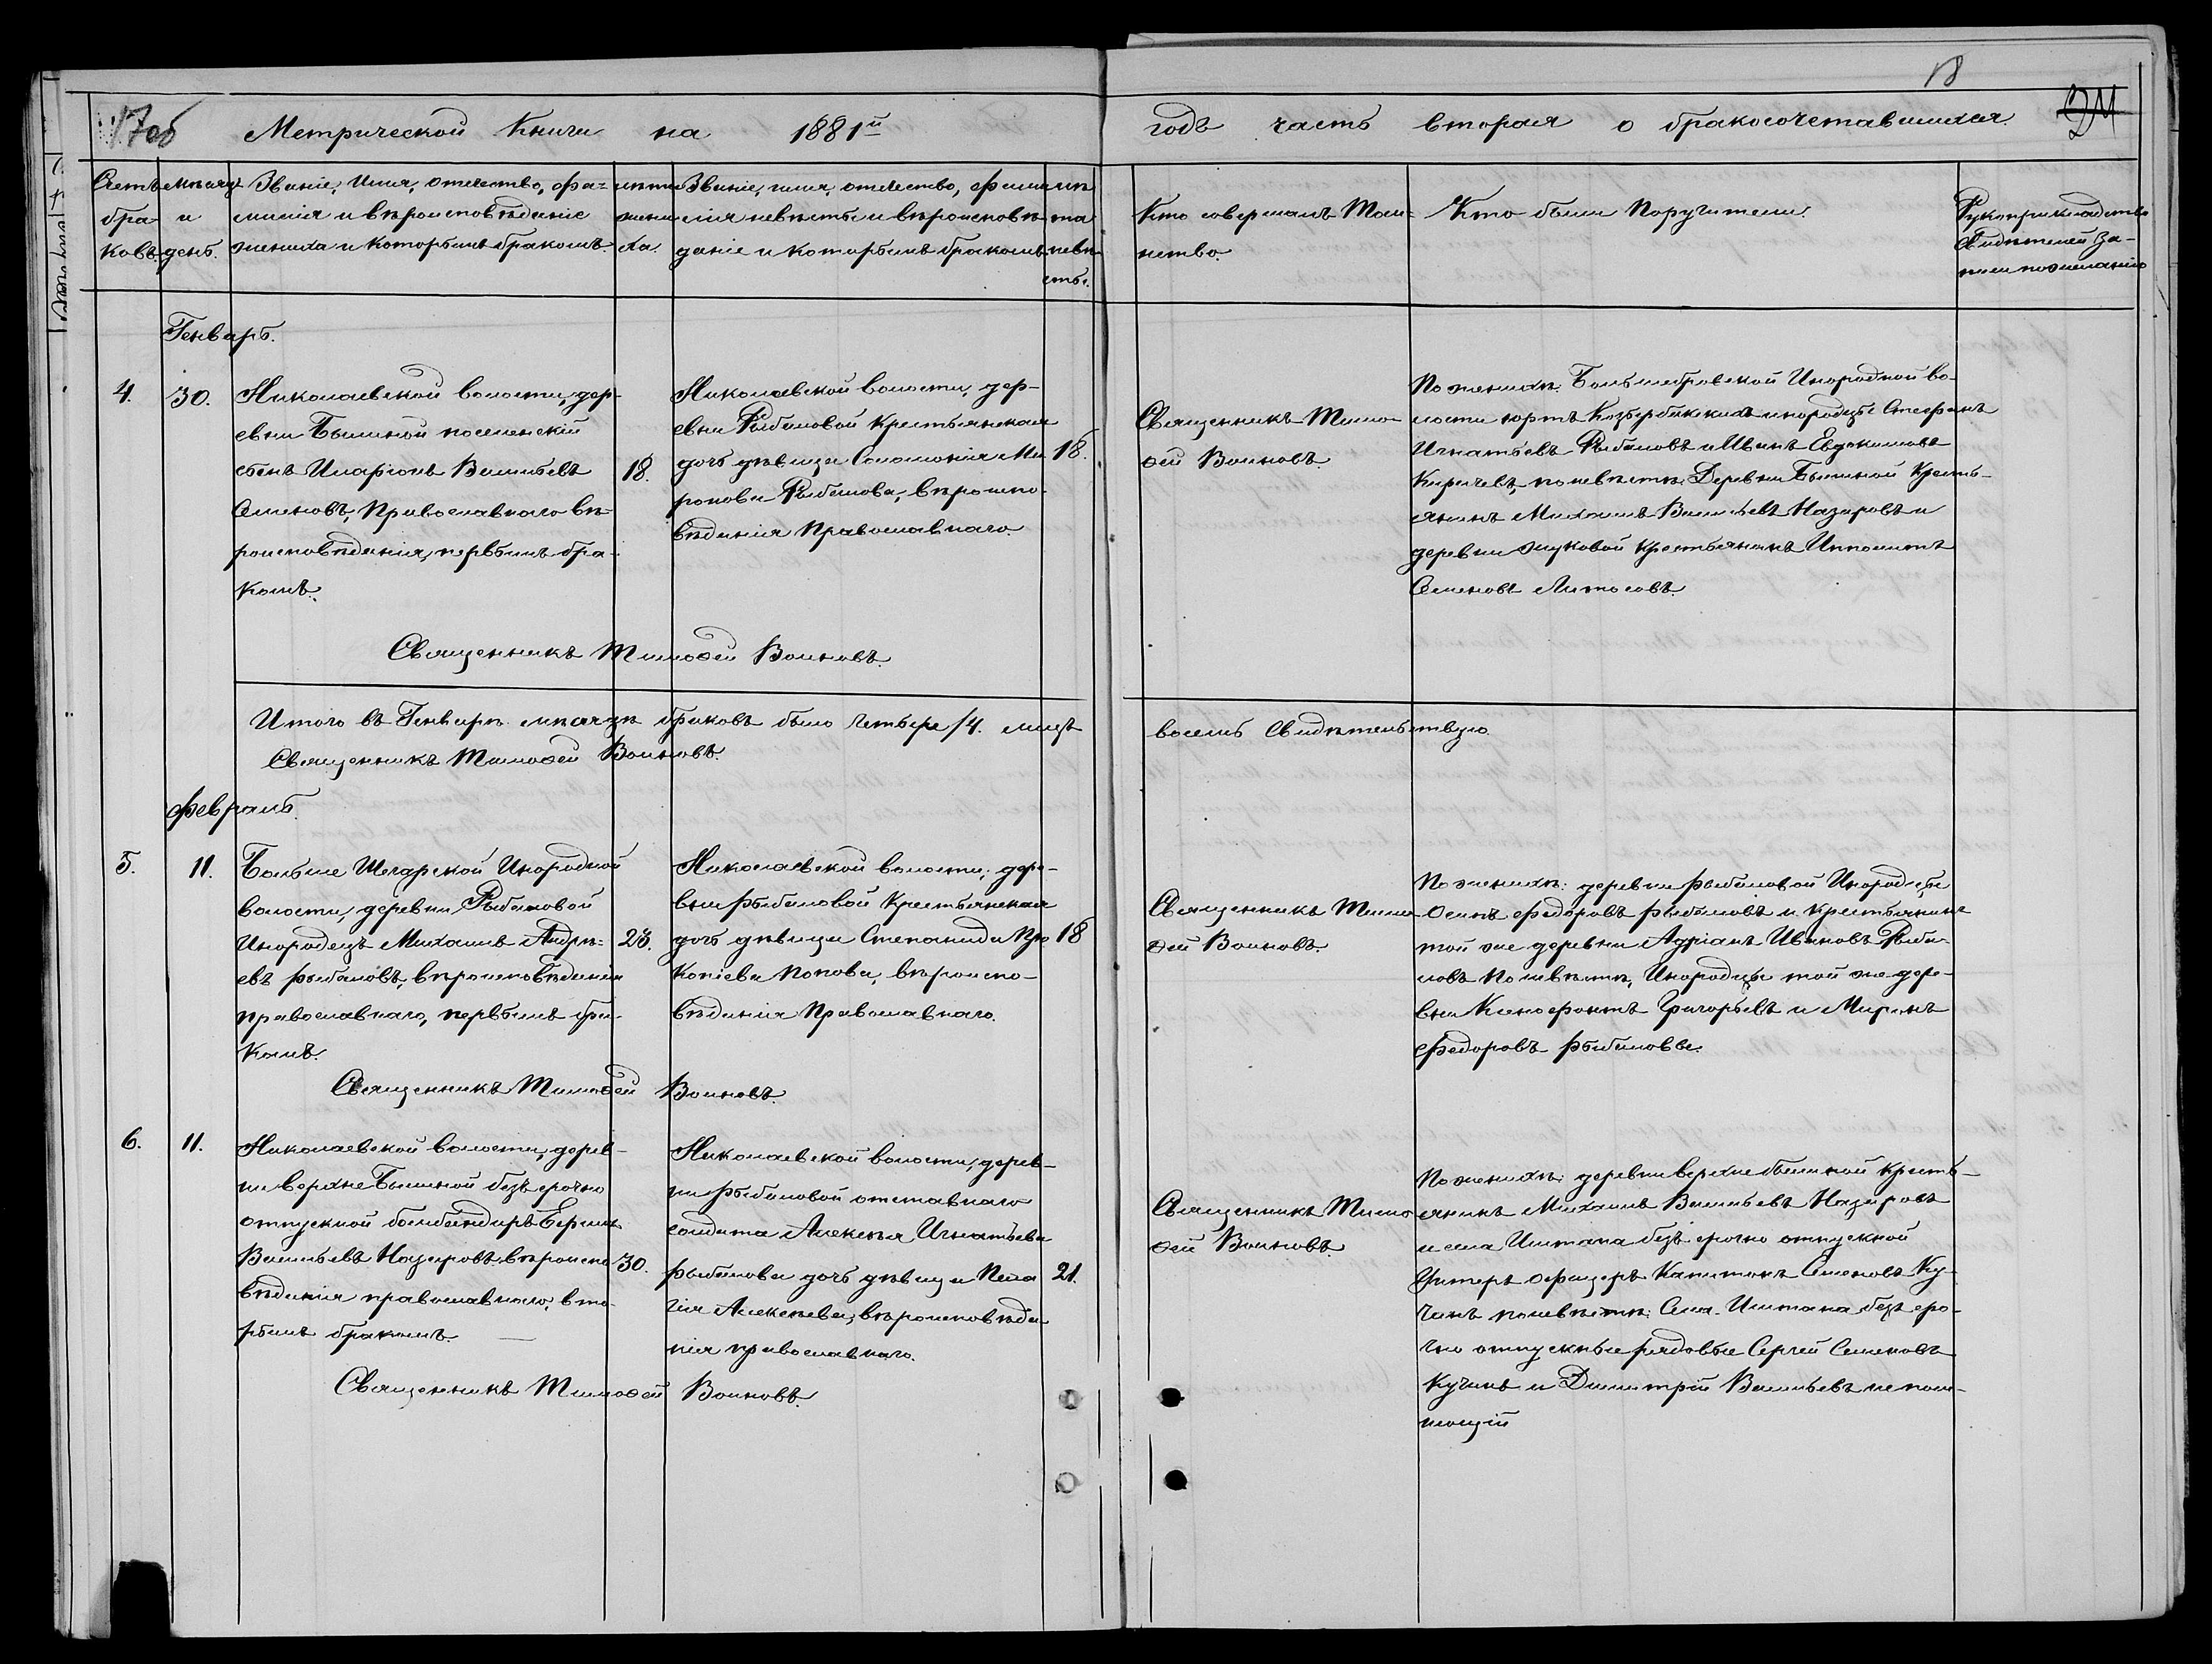 18
17об Метрической Книги на 1881й годъ часть вторая о бракосочетавшихся.
Счетъ браковъ.
мѣсяцъ и день.
Званіе, Имя, отчество, фа-
милія и вѣроисповѣданіе
жениха и которымъ бракомъ.
лѣта жениха.
Званіе, имя, отчество, фами-
лія невѣсты и вѣроисповѣ-
даніе и которымъ бракомъ.
лѣта невѣсты.
Кто совершалъ Таин-
ство.
Кто были Поручители.
Рукоприкладство
Свидѣтелей за-
писи по желанію
Генварь.
4. 30.
Николаевской волости, дер-
евни Былиной поселенскій
сынъ Иларіонъ Васильевъ
Семеновъ, Православнаго вѣ-
роисповѣданія, первымъ бра-
комъ.
18.
Николаевской волости, дер-
евни Рыбаловой Крестьянская
дочь дѣвица Соломонія Ми-
ронова Рыбалова, вѣроиспо-
вѣданія Православнаго.
18.
Священникъ Тимо-
ѳей Воиновъ.
По женихѣ: Инородной во-
лости юртъ инородцы Стефанъ
Игнатьевъ Рыбаловъ и Иванъ Евдокимовъ
Киричевъ, по невѣстѣ Деревни Былиной Кресть-
янинъ Михаилъ Васильевъ Назаровъ и
деревни Жуковой крестьянинъ Ипполитъ
Семеновъ Литосовъ.
Священникъ Тимоѳей Воиновъ.
Итого въ Генварѣ мѣсяцѣ браковъ было четыре /4. лицъ восемь Свидѣтельствую.
Священникъ Тимоѳей Воиновъ.
февраль.
5. 11.
Больше Шегарской Инородной
волости, деревни Рыбаловой
Инородецъ Михаилъ Андре-
евъ Рыбаловъ, вѣроисповѣданія
православнаго, первымъ бра-
комъ.
23.
Николаевской волости, дере-
вни Рыбаловой Крестьянская
дочь дѣвица Степанида Про-
копіева Попова, вѣроиспо-
вѣданія Православнаго.
18
Священникъ Тимо-
ѳей Воиновъ.
По женихѣ: деревни Рыбаловой Инородцы
Осипъ Федоровъ Рыбаловъ и крестьянинъ
той же деревни Адріанъ Ивановъ Рыба-
ловъ По невѣстѣ, Инородцы той же дере-
вни Ксенофонтъ Григорьевъ и Миронъ
Федоровъ Рыбаловы.
Священникъ Тимоѳей Воиновъ.
6. 11.
Николаевской волости, дерев-
ни верхне Былиной безъ срочно
отпускной бомбандиръ Ефимъ
Васильевъ Назаровъ вѣроиспо-
вѣданія православнаго, вто-
рымъ бракомъ.
30.
Николаевской волости, дерев-
ни Рыбаловой отставнаго
солдата Алексѣя Игнатьева
Рыбалова дочь дѣвица Пела-
гія Алексѣева, вѣроисповѣда-
нія православнаго.
21.
Священникъ Тимо-
ѳей Воиновъ.
По женихѣ: деревни верхне былиной кресть-
янинъ Михаилъ Васильевъ Назаровъ
и села Иштана безъ срочно отпускной
Унтеръ офицеръ Капитонъ Семеновъ Ку-
чинъ по невѣстѣ: Села Иштана безъ сро-
чно отпускные рядовые Сергѣй Семеновъ
Кучинъ и Димитрій Васильевъ непом-
нющій
Священникъ Тимоѳей Воиновъ.